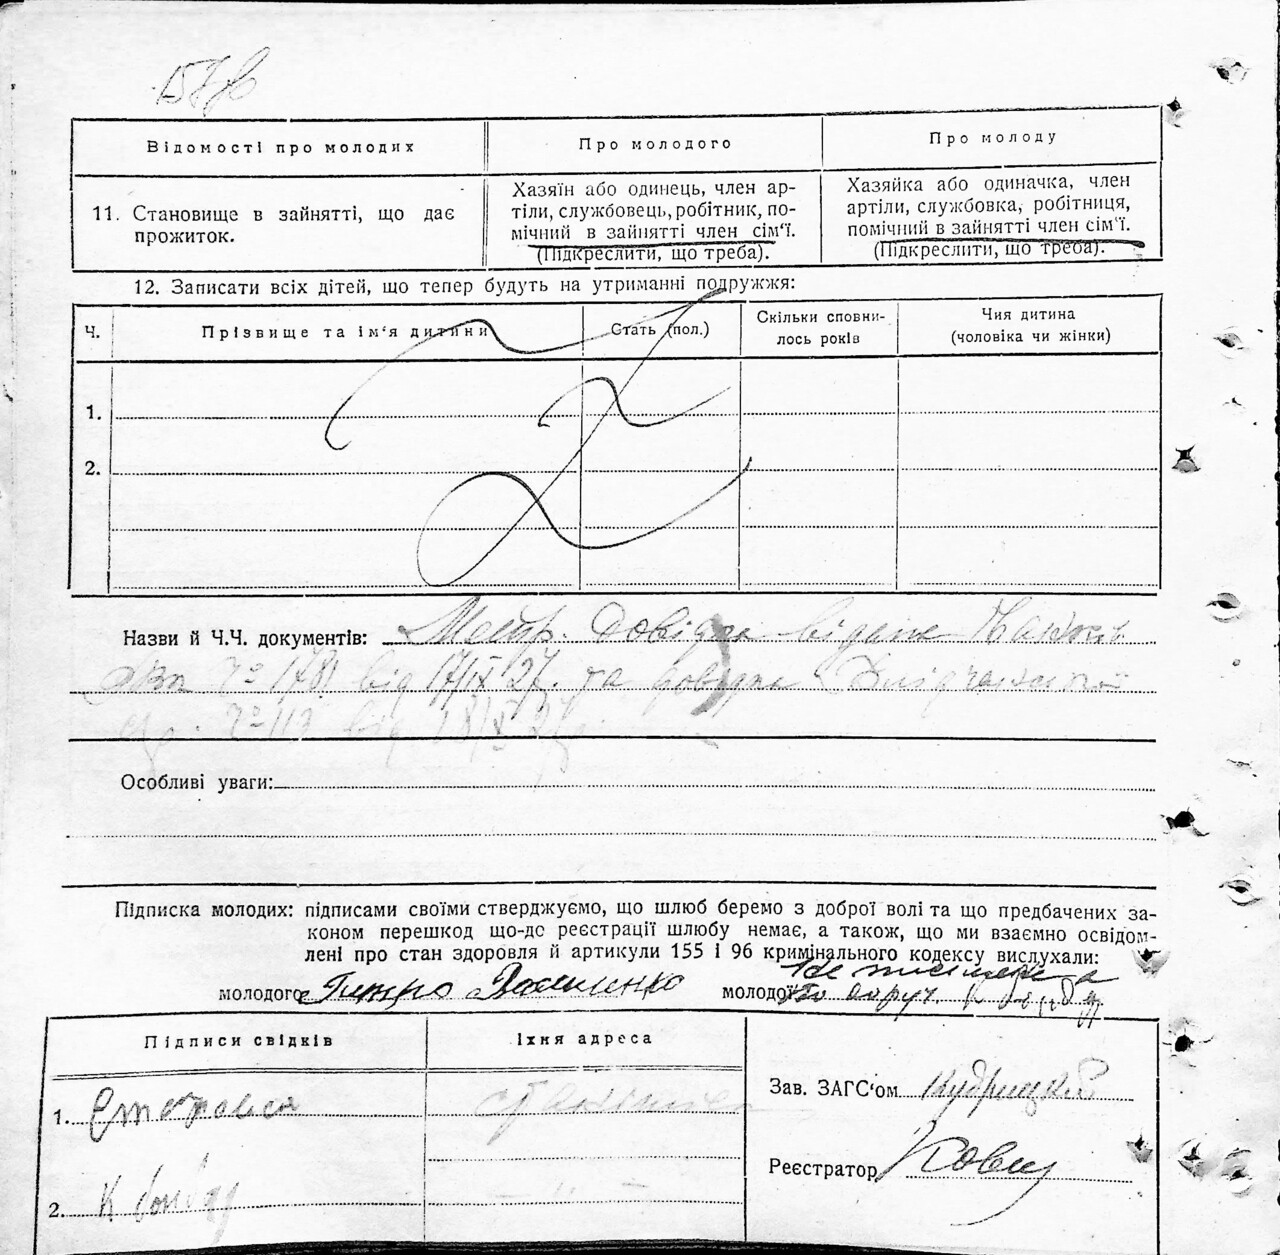 Відомості про молодих
Про молодого
Про молоду
11. Становище в зайнятті, що дає
прожиток.
Хазяїн або одинець, член ар-
тіли, службовець, робітник, по-
мічний в зайнятті член сім'ї.
(Підкреслити, що треба).
Хазяйка або одиначка, член
артіли, службовка, робітниця,
помічний в зайнятті член сім'ї.
(Підкреслити, що треба).
12. Записати всіх дітей, що тепер будуть на утриманні подружжя:
Ч.
Прізвище та ім'я дитини
Стать (пол.)
Скільки сповни-
лось років
Чия дитина
(чоловіка чи жінки)
1.
2.
Назви й Ч.Ч. документів: Метр. Довідка видана
№ 1781 від 17/IX 27. та довідка
№ 117 від
Особливі уваги:
Підписка молодих: підписами своїми стверджуємо, що шлюб беремо з доброї волі та що предбачених за-
коном перешкод що-до реєстрації шлюбу немає, а також, що ми взаємно освідом-
лені про стан здоровля й артикули 155 і 96 кримінального кодексу вислухали:
молодого Василенко
молодої
Підписи свідків
Їхня адреса
1.
2.
Зав. ЗАГС'ом Кудрицкий
Реєстратор